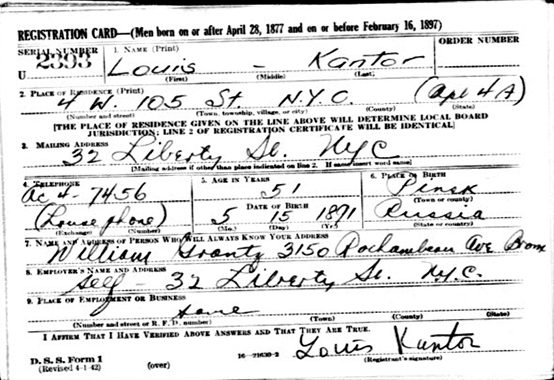 REGISTRATION CARD—(Men born on or after April 28, 1877 and on or before February 16, 1897)
SERIAL NUMBER 1. NAME (Print) ORDER NUMBER
U 2393 Louis - Kantor
(First) (Middle) (Last)
2. PLACE OF RESIDENCE (Print)
4 W. 105 St. N.Y.C. (Apt 4A)
(Number and street) (Town, township, village, or city) (County) (State)
[THE PLACE OF RESIDENCE GIVEN ON THE LINE ABOVE WILL DETERMINE LOCAL BOARD
JURISDICTION; LINE 2 OF REGISTRATION CERTIFICATE WILL BE IDENTICAL]
3. MAILING ADDRESS
32 Liberty St. NYC
[Mailing address if other than place indicated on line 2. If same insert word same]
4. TELEPHONE 5. AGE IN YEARS 6. PLACE OF BIRTH
Ac 4-7456 51 Pinsk
DATE OF BIRTH (Town or county)
(House phone) 5 15 1891 Russia
(Exchange) (Number) (Mo.) (Day) (Yr.) (State or country)
7. NAME AND ADDRESS OF PERSON WHO WILL ALWAYS KNOW YOUR ADDRESS
William 3150 Rochambeau Ave Bronx
8. EMPLOYER'S NAME AND ADDRESS
Self - 32 Liberty St. N.Y.C.
9. PLACE OF EMPLOYMENT OR BUSINESS
(Number and street or R. F. D. number) (Town) (County) (State)
I AFFIRM THAT I HAVE VERIFIED ABOVE ANSWERS AND THAT THEY ARE TRUE.
D. S. S. Form 1
(Revised 4-1-42) (over) 16—21630-2 Louis Kantor
(Registrant's signature)